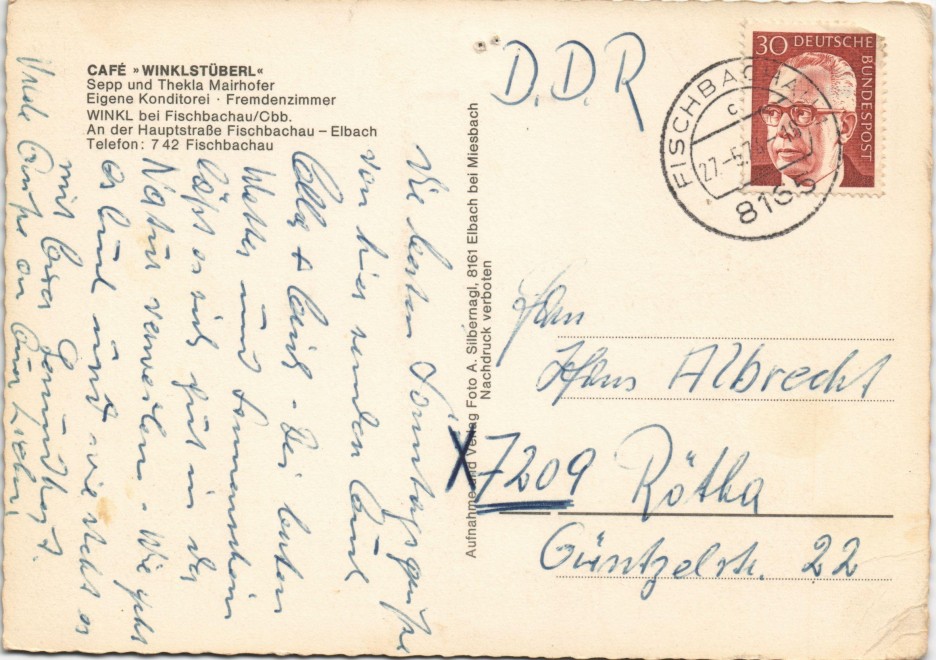 CAFÉ »WINKLSTÜBERL«
Sepp und Thekla Mairhofer
Eigene Konditorei · Fremdenzimmer
WINKL bei Fischbachau/Obb.
An der Hauptstraße Fischbachau – Elbach
Telefon: 7 42 Fischbachau
Die besten Sonntagsgrüße
von hier senden Euch
- Bei
Wetter und Sonnenschein
läßt es sich gut in der
Natur verweilen. Wie geht
es Euch und wie steht es
mit Eurer Gesundheit.
Viele Grüße an Eure Lieben
Aufnahme und Verlag Foto A. Silbernagl, 8161 Elbach bei Miesbach
Nachdruck verboten
D.D.R
30 DEUTSCHE BUNDESPOST
FISCHBACHAU
c
27.-5.7
8165
Hans Albrecht
X7209 Rötha
Güntzelstr. 22